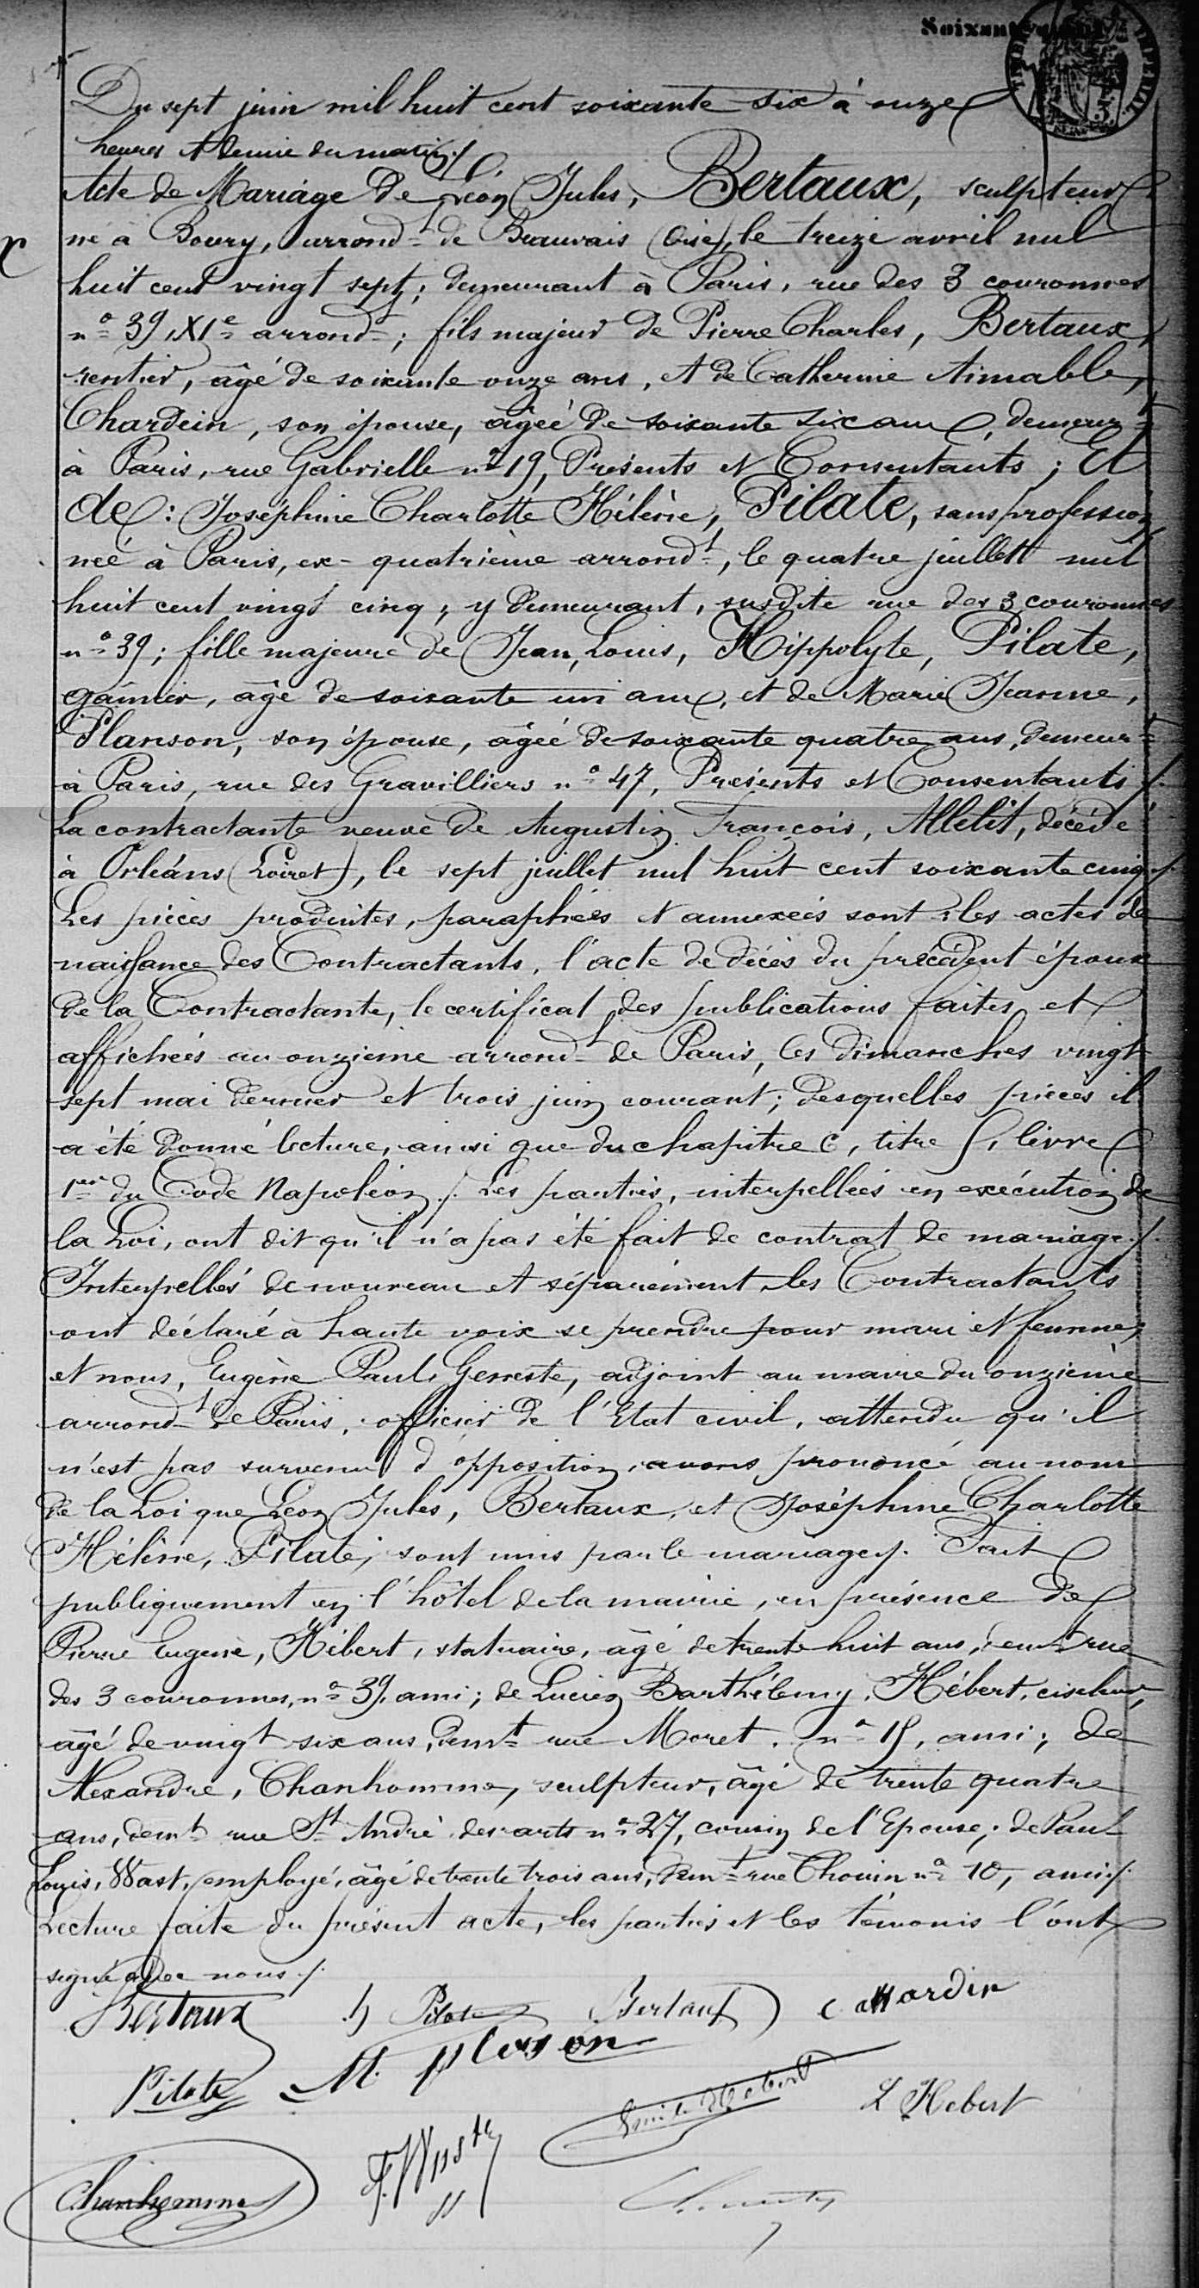 Du sept juin mil huit cent soixante six à onze
heures et demie du matin ./.
Acte de Mariage de Léon Jules, Bertaux, sculpteur
né à Boury, arrondt de Beauvais (Oise), le treize avril mil
huit cent vingt sept ; demeurant à Paris, rue des 3 couronnes
no 39, XIe arrondt ; fils majeur de Pierre Charles, Bertaux,
rentier, âgé de soixante onze ans, et de Catherine Aimable,
Chardein, son épouse, âgée de soixante six ans, demeurt
à Paris, rue Gabrielle no 19, Présents et Consentants ; Et
de : Joséphine Charlotte Hélène, Pilate, sans profession
née à Paris, ex-quatrième arrondt, le quatre juillet mil
huit cent vingt cinq ; y demeurant, susdite rue des 3 couronnes
no 39 ; fille majeure de Jean, Louis, Hippolyte, Pilate,
gainier, âgé de soixante un ans, et de Marie Jeanne,
Planson, son épouse, âgée de soixante quatre ans, demeurt
à Paris, rue des Gravilliers no 47, Présents et Consentants ./.
La contractante veuve de Augustin François, Allelit, décédé
à Orléans (Loiret), le sept juillet mil huit cent soixante cinq ./.
Les pièces produites, paraphées et annexées sont : les actes de
naissance des Contractants, l'acte de décès du précédent époux
de la Contractante, le certificat des publications faites et
affichées au onzième arrondt de Paris, les dimanches vingt
sept mai dernier et trois juin courant ; desquelles pièces il
a été donné lecture, ainsi que du chapitre 6, titre 5, livre
1er du Code Napoléon ./. Les parties, interpellées en exécution de
la Loi, ont dit qu'il n'a pas été fait de contrat de mariage ./.
Interpellés de nouveau et séparément les Contractants
ont déclaré à haute voix se prendre pour mari et femme,
et nous, Eugène Paul, Geneste, adjoint au maire du onzième
arrondt de Paris, officier de l'Etat civil, attendu qu'il
n'est pas survenu d'opposition, avons prononcé au nom
de la Loi que Léon Jules, Bertaux, et Joséphine Charlotte
Hélène, Pilate, sont unis par le mariage ./. Fait
publiquement en l'hôtel de la mairie, en présence de
Pierre Eugène, Hébert, statuaire, âgé de trente huit ans, demt rue
des 3 couronnes, no 39, ami ; de Lucien Barthélemy, Hébert, ciseleur,
âgé de vingt six ans, demt rue Moret, no 15, ami ; de
Alexandre, Chanhomme, sculpteur, âgé de trente quatre
ans, demt rue St André des arts no 27, cousin de l'Epouse ; de Paul
Louis, Wast, employé, âgé de trente trois ans, demt rue Thouin no 10, ami ./.
Lecture faite du présent acte, les parties et les témoins l'ont
signé avec nous ./.
Bertaux h Pilate Bertaux C Chardin
Pilate M. planson
Emile Hébert L Hebert
Chanhomme